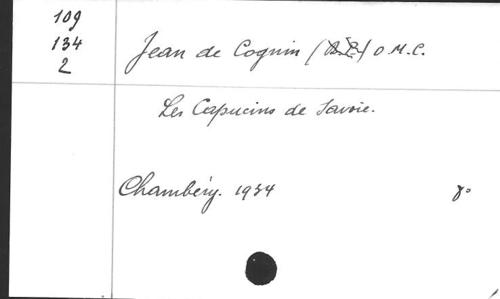 109
134
2
Jean de Cognin ( ) O. M. C.
Les Capucins de Savoie.
Chambéry. 1934
8°